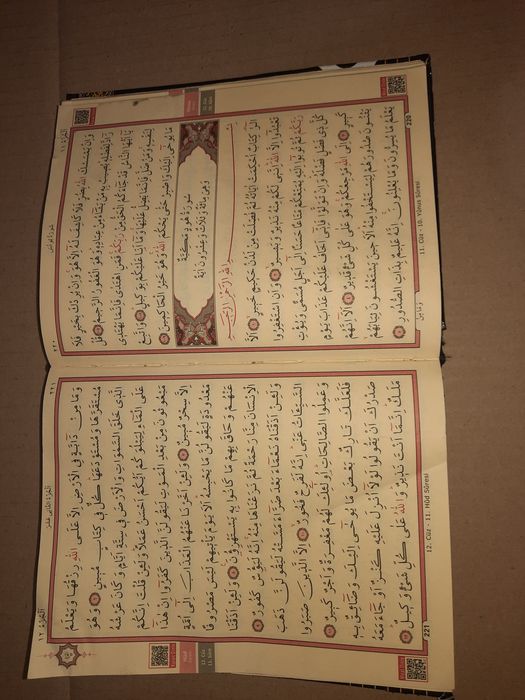 الجزء ١١
٢٢٠
سُورَةُ يُونُسَ
وَاِنْ يَمْسَسْكَ اللّٰهُ بِضُرٍّ فَلَا كَاشِفَ لَهُٓ اِلَّا هُوَ وَاِنْ يُرِدْكَ بِخَيْرٍ فَلَا
رَٓادَّ لِفَضْلِهٖ يُصٖيبُ بِهٖ مَنْ يَشَٓاءُ مِنْ عِبَادِهٖ وَهُوَ الْغَفُورُ الرَّحٖيمُ قُلْ
يَٓا اَيُّهَا النَّاسُ قَدْ جَٓاءَكُمُ الْحَقُّ مِنْ رَبِّكُمْ فَمَنِ اهْتَدٰى فَاِنَّمَا يَهْتَدٖي
لِنَفْسِهٖ وَمَنْ ضَلَّ فَاِنَّمَا يَضِلُّ عَلَيْهَا وَمَٓا اَنَا عَلَيْكُمْ بِوَكٖيلٍ وَاتَّبِعْ
مَا يُوحٰٓى اِلَيْكَ وَاصْبِرْ حَتّٰى يَحْكُمَ اللّٰهُ وَهُوَ خَيْرُ الْحَاكِمٖينَ
سُورَةُ هُودٍ مَكِّيَّةٌ
وَهِيَ مِائَةٌ وَثَلَاثٌ وَعِشْرُونَ اٰيَةً
بِسْمِ اللّٰهِ الرَّحْمٰنِ الرَّحٖيمِ
الٓرٰ كِتَابٌ اُحْكِمَتْ اٰيَاتُهُ ثُمَّ فُصِّلَتْ مِنْ لَدُنْ حَكٖيمٍ خَبٖيرٍ اَلَّا
تَعْبُدُٓوا اِلَّا اللّٰهَ اِنَّنٖي لَكُمْ مِنْهُ نَذٖيرٌ وَبَشٖيرٌ وَاَنِ اسْتَغْفِرُوا
رَبَّكُمْ ثُمَّ تُوبُٓوا اِلَيْهِ يُمَتِّعْكُمْ مَتَاعًا حَسَنًا اِلٰٓى اَجَلٍ مُسَمًّى وَيُؤْتِ
كُلَّ ذٖي فَضْلٍ فَضْلَهُ وَاِنْ تَوَلَّوْا فَاِنّٖٓي اَخَافُ عَلَيْكُمْ عَذَابَ يَوْمٍ
كَبٖيرٍ اِلَى اللّٰهِ مَرْجِعُكُمْ وَهُوَ عَلٰى كُلِّ شَيْءٍ قَدٖيرٌ اَلَٓا اِنَّهُمْ
يَثْنُونَ صُدُورَهُمْ لِيَسْتَخْفُوا مِنْهُ اَلَا حٖينَ يَسْتَغْشُونَ ثِيَابَهُمْ
يَعْلَمُ مَا يُسِرُّونَ وَمَا يُعْلِنُونَ اِنَّهُ عَلٖيمٌ بِذَاتِ الصُّدُورِ
وَمَا مِنْ
220
11. Cüz - 10. Yûnus Sûresi
الجزء ١٢
اَلْجُزْءُ الثَّانِي عَشَرَ
٢٢١
وَمَا مِنْ دَٓابَّةٍ فِي الْاَرْضِ اِلَّا عَلَى اللّٰهِ رِزْقُهَا وَيَعْلَمُ
مُسْتَقَرَّهَا وَمُسْتَوْدَعَهَا كُلٌّ فٖي كِتَابٍ مُبٖينٍ وَهُوَ
الَّذٖي خَلَقَ السَّمٰوَاتِ وَالْاَرْضَ فٖي سِتَّةِ اَيَّامٍ وَكَانَ عَرْشُهُ
عَلَى الْمَٓاءِ لِيَبْلُوَكُمْ اَيُّكُمْ اَحْسَنُ عَمَلًا وَلَئِنْ قُلْتَ اِنَّكُمْ
مَبْعُوثُونَ مِنْ بَعْدِ الْمَوْتِ لَيَقُولَنَّ الَّذٖينَ كَفَرُٓوا اِنْ هٰذَٓا
اِلَّا سِحْرٌ مُبٖينٌ وَلَئِنْ اَخَّرْنَا عَنْهُمُ الْعَذَابَ اِلٰٓى اُمَّةٍ
مَعْدُودَةٍ لَيَقُولُنَّ مَا يَحْبِسُهُ اَلَا يَوْمَ يَأْتٖيهِمْ لَيْسَ مَصْرُوفًا
عَنْهُمْ وَحَاقَ بِهِمْ مَا كَانُوا بِهٖ يَسْتَهْزِؤُنَ وَلَئِنْ اَذَقْنَا
الْاِنْسَانَ مِنَّا رَحْمَةً ثُمَّ نَزَعْنَاهَا مِنْهُ اِنَّهُ لَيَؤُسٌ كَفُورٌ
وَلَئِنْ اَذَقْنَاهُ نَعْمَٓاءَ بَعْدَ ضَرَّٓاءَ مَسَّتْهُ لَيَقُولَنَّ ذَهَبَ
السَّيِّـَٔاتُ عَنّٖي اِنَّهُ لَفَرِحٌ فَخُورٌ اِلَّا الَّذٖينَ صَبَرُوا
وَعَمِلُوا الصَّالِحَاتِ اُو۬لٰٓئِكَ لَهُمْ مَغْفِرَةٌ وَاَجْرٌ كَبٖيرٌ
فَلَعَلَّكَ تَارِكٌ بَعْضَ مَا يُوحٰٓى اِلَيْكَ وَضَٓائِقٌ بِهٖ
صَدْرُكَ اَنْ يَقُولُوا لَوْلَٓا اُنْزِلَ عَلَيْهِ كَنْزٌ اَوْ جَٓاءَ مَعَهُ
مَلَكٌ اِنَّمَٓا اَنْتَ نَذٖيرٌ وَاللّٰهُ عَلٰى كُلِّ شَيْءٍ وَكٖيلٌ
12. Cüz - 11. Hûd Sûresi
221